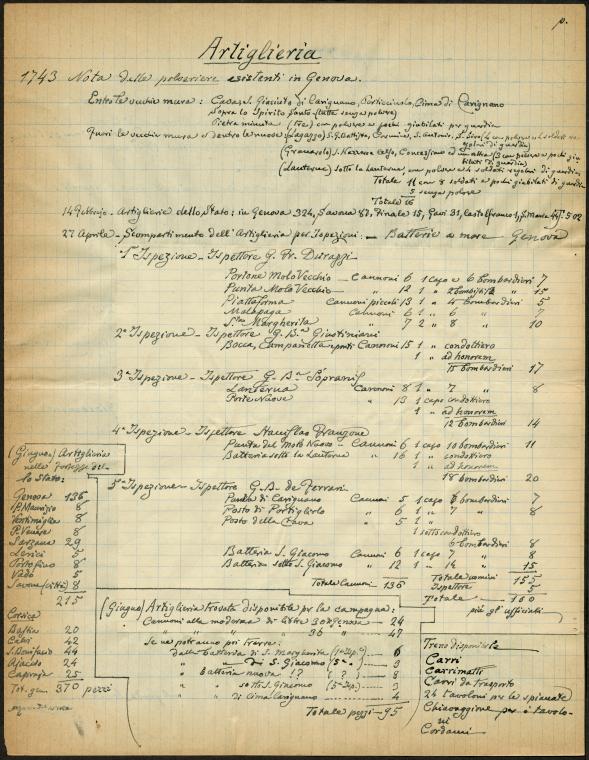 p.
Artiglieria
1743 Nota delle polveriere esistenti in Genova.
Entro le vecchie mura: Casazza S. Giacinto di Carignano, Porticiuolo, Cima di Carignano
sopra lo Spirito Santo (tutte senza polvere)
Pietra minuta (Tre) con polvere e pochi giubilati per guardia
Fuori le vecchie mura e dentro le nuove: (Lagazzo) S. G. Battista, S. Antonio, con polvere e 4 soldati re-
golni di guardia)
(Granarolo) S. Nazzaro Celso, Concezione ed un'altra (3 con polvere e pochi giu-
bilati di guardia)
(Lanterna) sotto la Lanterna, con polvere e 4 soldati regolni di guardia
Totale 11 con 8 soldati e pochi giubilati di guardia
5 senza polvere
Totale 16
14 Febbraio - Artiglierie dello Stato: in Genova 324, Savona 87, Finale 15, Gavi 31, Castelfranco 1, S. Maria 44 T. 502
27 Aprile - Scompartimento dell'Artiglieria per Ispezioni: - Batterie a mare Genova
1ª Ispezione - Ispettore G. Fr. Durazzi
Portone Molo Vecchio - Cannoni 6 1 capo e 6 bombardieri 7
Punta Molo Vecchio " 12 1 " 2 bombisti " 15
Piattaforma Cannoni piccoli 13 1 " 4 bombardieri 5
Malapaga Cannoni 6 1 " 6 " 7
S.ta Margherita " 7 2 " 8 " 10
2ª Ispezione - Ispettore G. B.a Giustiniani
Bocca, Campanetta e ponti Cannoni 15 1 " condottiero
1 " ad honorem
15 bombardieri 17
3ª Ispezione - Ispettore G. B.a Sopranis
Lanterna Cannoni 8 1 " 7 " 8
Porte Nuove " 13 1 capo condottiero
1 " ad honorem
12 bombardieri 14
4ª Ispezione - Ispettore Stanislao Franzone
Punta del Molo Nuovo - Cannoni 6 1 capo 10 bombardieri 11
Batteria sotto la Lanterna " 16 1 " condottiero
1 " ad honorem
18 bombardieri 20
5ª Ispezione - Ispettore G. B. de Ferrari
Punta di Carignano Cannoni 5 1 capo 6 bombardieri 7
Posto di Portiglirlo " 6 1 " 7 " 8
Posto della Cava " 5 1 "
1 sotto condottiero
6 bombardieri 8
Batteria S. Giacomo Cannoni 6 1 capo 7 " 8
Batteria sotto S. Giacomo " 12 1 " 14 " 15
Totale Cannoni 136 Totale uomini 155
Ispettore 5
Totale 160
più gli ufficiali
(Giugno) Artiglieria
nelle Fortezze del-
lo Stato:
Genova 136
P. Maurizio 8
Ventimiglia 8
P. Venere 8
Sarzana 29
Lerici 5
Portofino 8
Vado 5
Savona (città) 8
215
Corsica
Bastia 20
Calvi 42
S. Bonifacio 44
Ajaccio 24
Capraja 25
Tot. gen. 370 pezzi
(Giugno) Artiglieria trovata disponibile per la campagna:
Cannoni alla moderna di libre 30 di Genova - 24
" " " " 36 " - 47
Se ne potranno poi trarre:
dalla batteria di S. Margherita (1ª Isp.e) - 6
" " di S. Giacomo (5ª ") - 3
" batteria nuova !? ( ? ) - 8
" " sotto S. Giacomo (5ª Isp.) - 3
" " di Cima Carignano - 4
Totale pezzi - 95
Treno disponibile
Carri
Carrimatti
Carri da trasporto
24 tavoloni per le spianate
Chiavaggione per i tavolo-
ni
Cordami